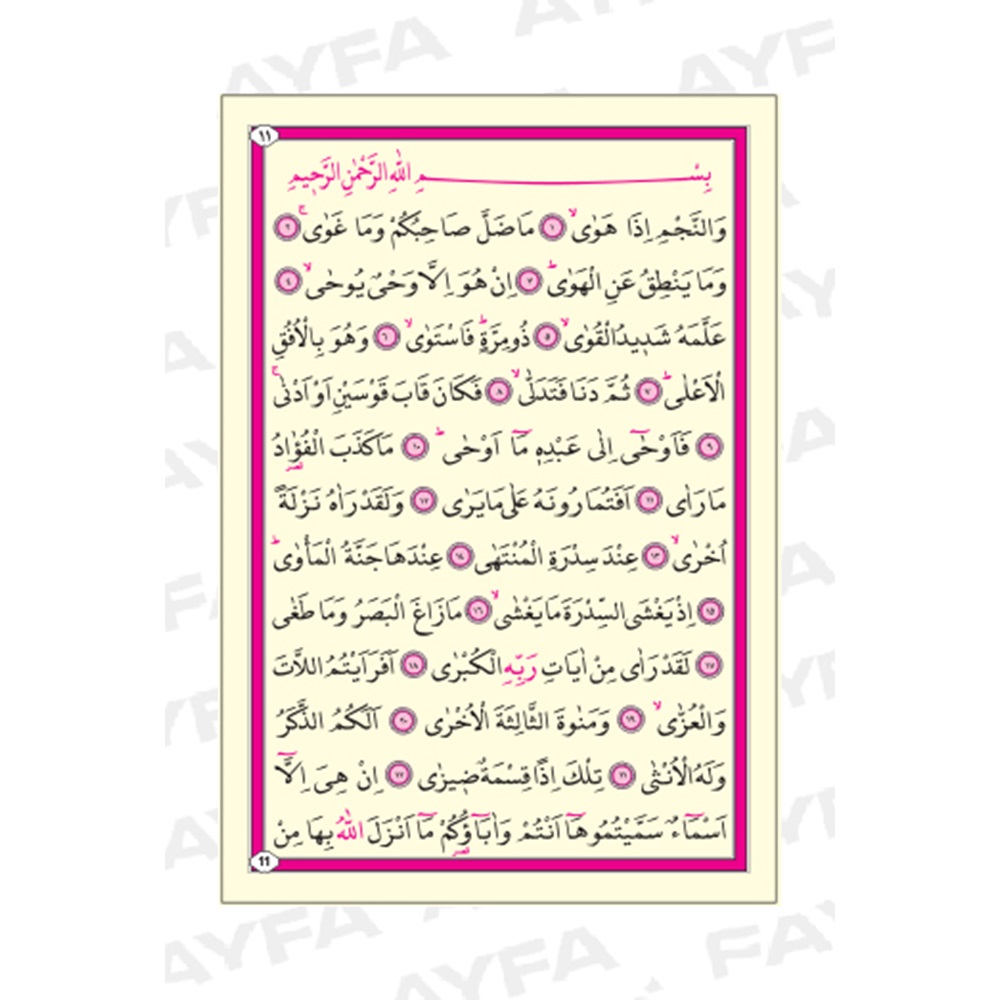 AYFA AYFA AYFA
١١
بِسْمِ اللّٰهِ الرَّحْمٰنِ الرَّحٖيمِ
وَالنَّجْمِ اِذَا هَوٰىۙ ﴿١﴾ مَا ضَلَّ صَاحِبُكُمْ وَمَا غَوٰىۚ ﴿٢﴾
وَمَا يَنْطِقُ عَنِ الْهَوٰىؕ ﴿٣﴾ اِنْ هُوَ اِلَّا وَحْىٌ يُوحٰىۙ ﴿٤﴾
عَلَّمَهُ شَدٖيدُ الْقُوٰىۙ ﴿٥﴾ ذُو مِرَّةٍؕ فَاسْتَوٰىۙ ﴿٦﴾ وَهُوَ بِالْاُفُقِ
الْاَعْلٰىؕ ﴿٧﴾ ثُمَّ دَنَا فَتَدَلّٰىۙ ﴿٨﴾ فَكَانَ قَابَ قَوْسَيْنِ اَوْ اَدْنٰىۚ
﴿٩﴾ فَاَوْحٰٓى اِلٰى عَبْدِهٖ مَٓا اَوْحٰىؕ ﴿١٠﴾ مَا كَذَبَ الْفُؤٰادُ
مَا رَاٰى ﴿١١﴾ اَفَتُمَارُونَهُ عَلٰى مَا يَرٰى ﴿١٢﴾ وَلَقَدْ رَاٰهُ نَزْلَةً
اُخْرٰىۙ ﴿١٣﴾ عِنْدَ سِدْرَةِ الْمُنْتَهٰى ﴿١٤﴾ عِنْدَهَا جَنَّةُ الْمَأْوٰىؕ
﴿١٥﴾ اِذْ يَغْشَى السِّدْرَةَ مَا يَغْشٰىۙ ﴿١٦﴾ مَا زَاغَ الْبَصَرُ وَمَا طَغٰى
﴿١٧﴾ لَقَدْ رَاٰى مِنْ اٰيَاتِ رَبِّهِ الْكُبْرٰى ﴿١٨﴾ اَفَرَاَيْتُمُ اللَّاتَ
وَالْعُزّٰىۙ ﴿١٩﴾ وَمَنٰوةَ الثَّالِثَةَ الْاُخْرٰى ﴿٢٠﴾ اَلَكُمُ الذَّكَرُ
وَلَهُ الْاُنْثٰى ﴿٢١﴾ تِلْكَ اِذًا قِسْمَةٌ ضٖيزٰى ﴿٢٢﴾ اِنْ هِىَ اِلَّٓا
اَسْمَٓاءٌ سَمَّيْتُمُوهَٓا اَنْتُمْ وَاٰبَٓاؤُكُمْ مَٓا اَنْزَلَ اللّٰهُ بِهَا مِنْ
11
AYFA AYFA FA